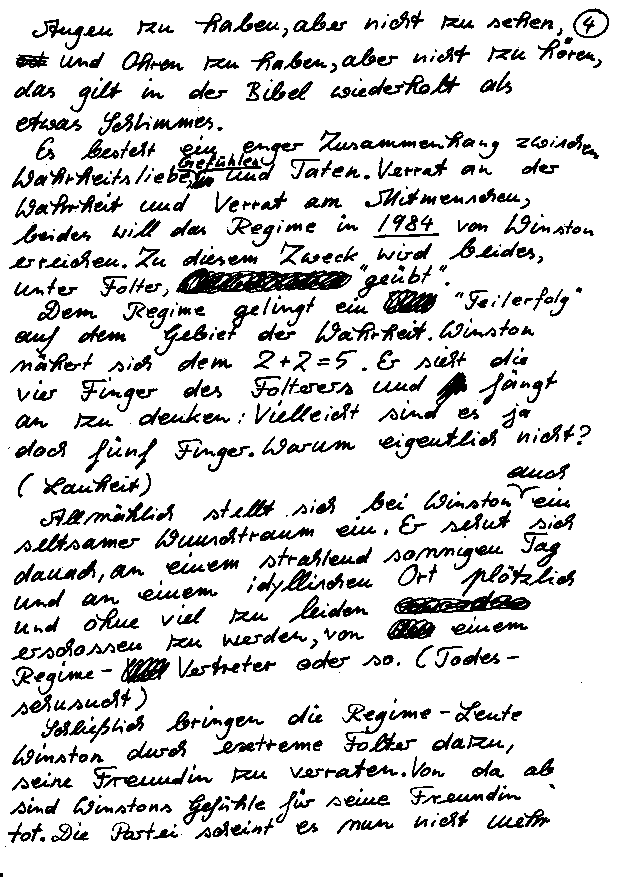 Augen zu haben, aber nicht zu sehen, 4
und Ohren zu haben, aber nicht zu hören,
das gilt in der Bibel wiederholt als
etwas Schlimmes.
Es besteht ein enger Zusammenhang zwischen
Wahrheitsliebe, Gefühlen und Taten. Verrat an der
Wahrheit und Verrat am Mitmenschen,
beides will das Regime in 1984 von Winston
erreichen. Zu diesem Zweck wird beides,
unter Folter, "geübt".
Dem Regime gelingt ein "Teilerfolg"
auf dem Gebiet der Wahrheit. Winston
nähert sich dem 2+2=5. Er sieht die
vier Finger des Folterers und fängt
an zu denken: Vielleicht sind es ja
doch fünf Finger. Warum eigentlich nicht?
(Lauheit)
Allmählich stellt sich bei Winston auch ein
seltsamer Wunschtraum ein. Er sehnt sich
danach, an einem strahlend sonnigen Tag
und an einem idyllischen Ort plötzlich
und ohne viel zu leiden
erschossen zu werden, von einem
Regime-Vertreter oder so. (Todes-
sehnsucht)
Schließlich bringen die Regime-Leute
Winston durch extreme Folter dazu,
seine Freundin zu verraten. Von da ab
sind Winstons Gefühle für seine Freundin
tot. Die Partei scheint es nun nicht mehr